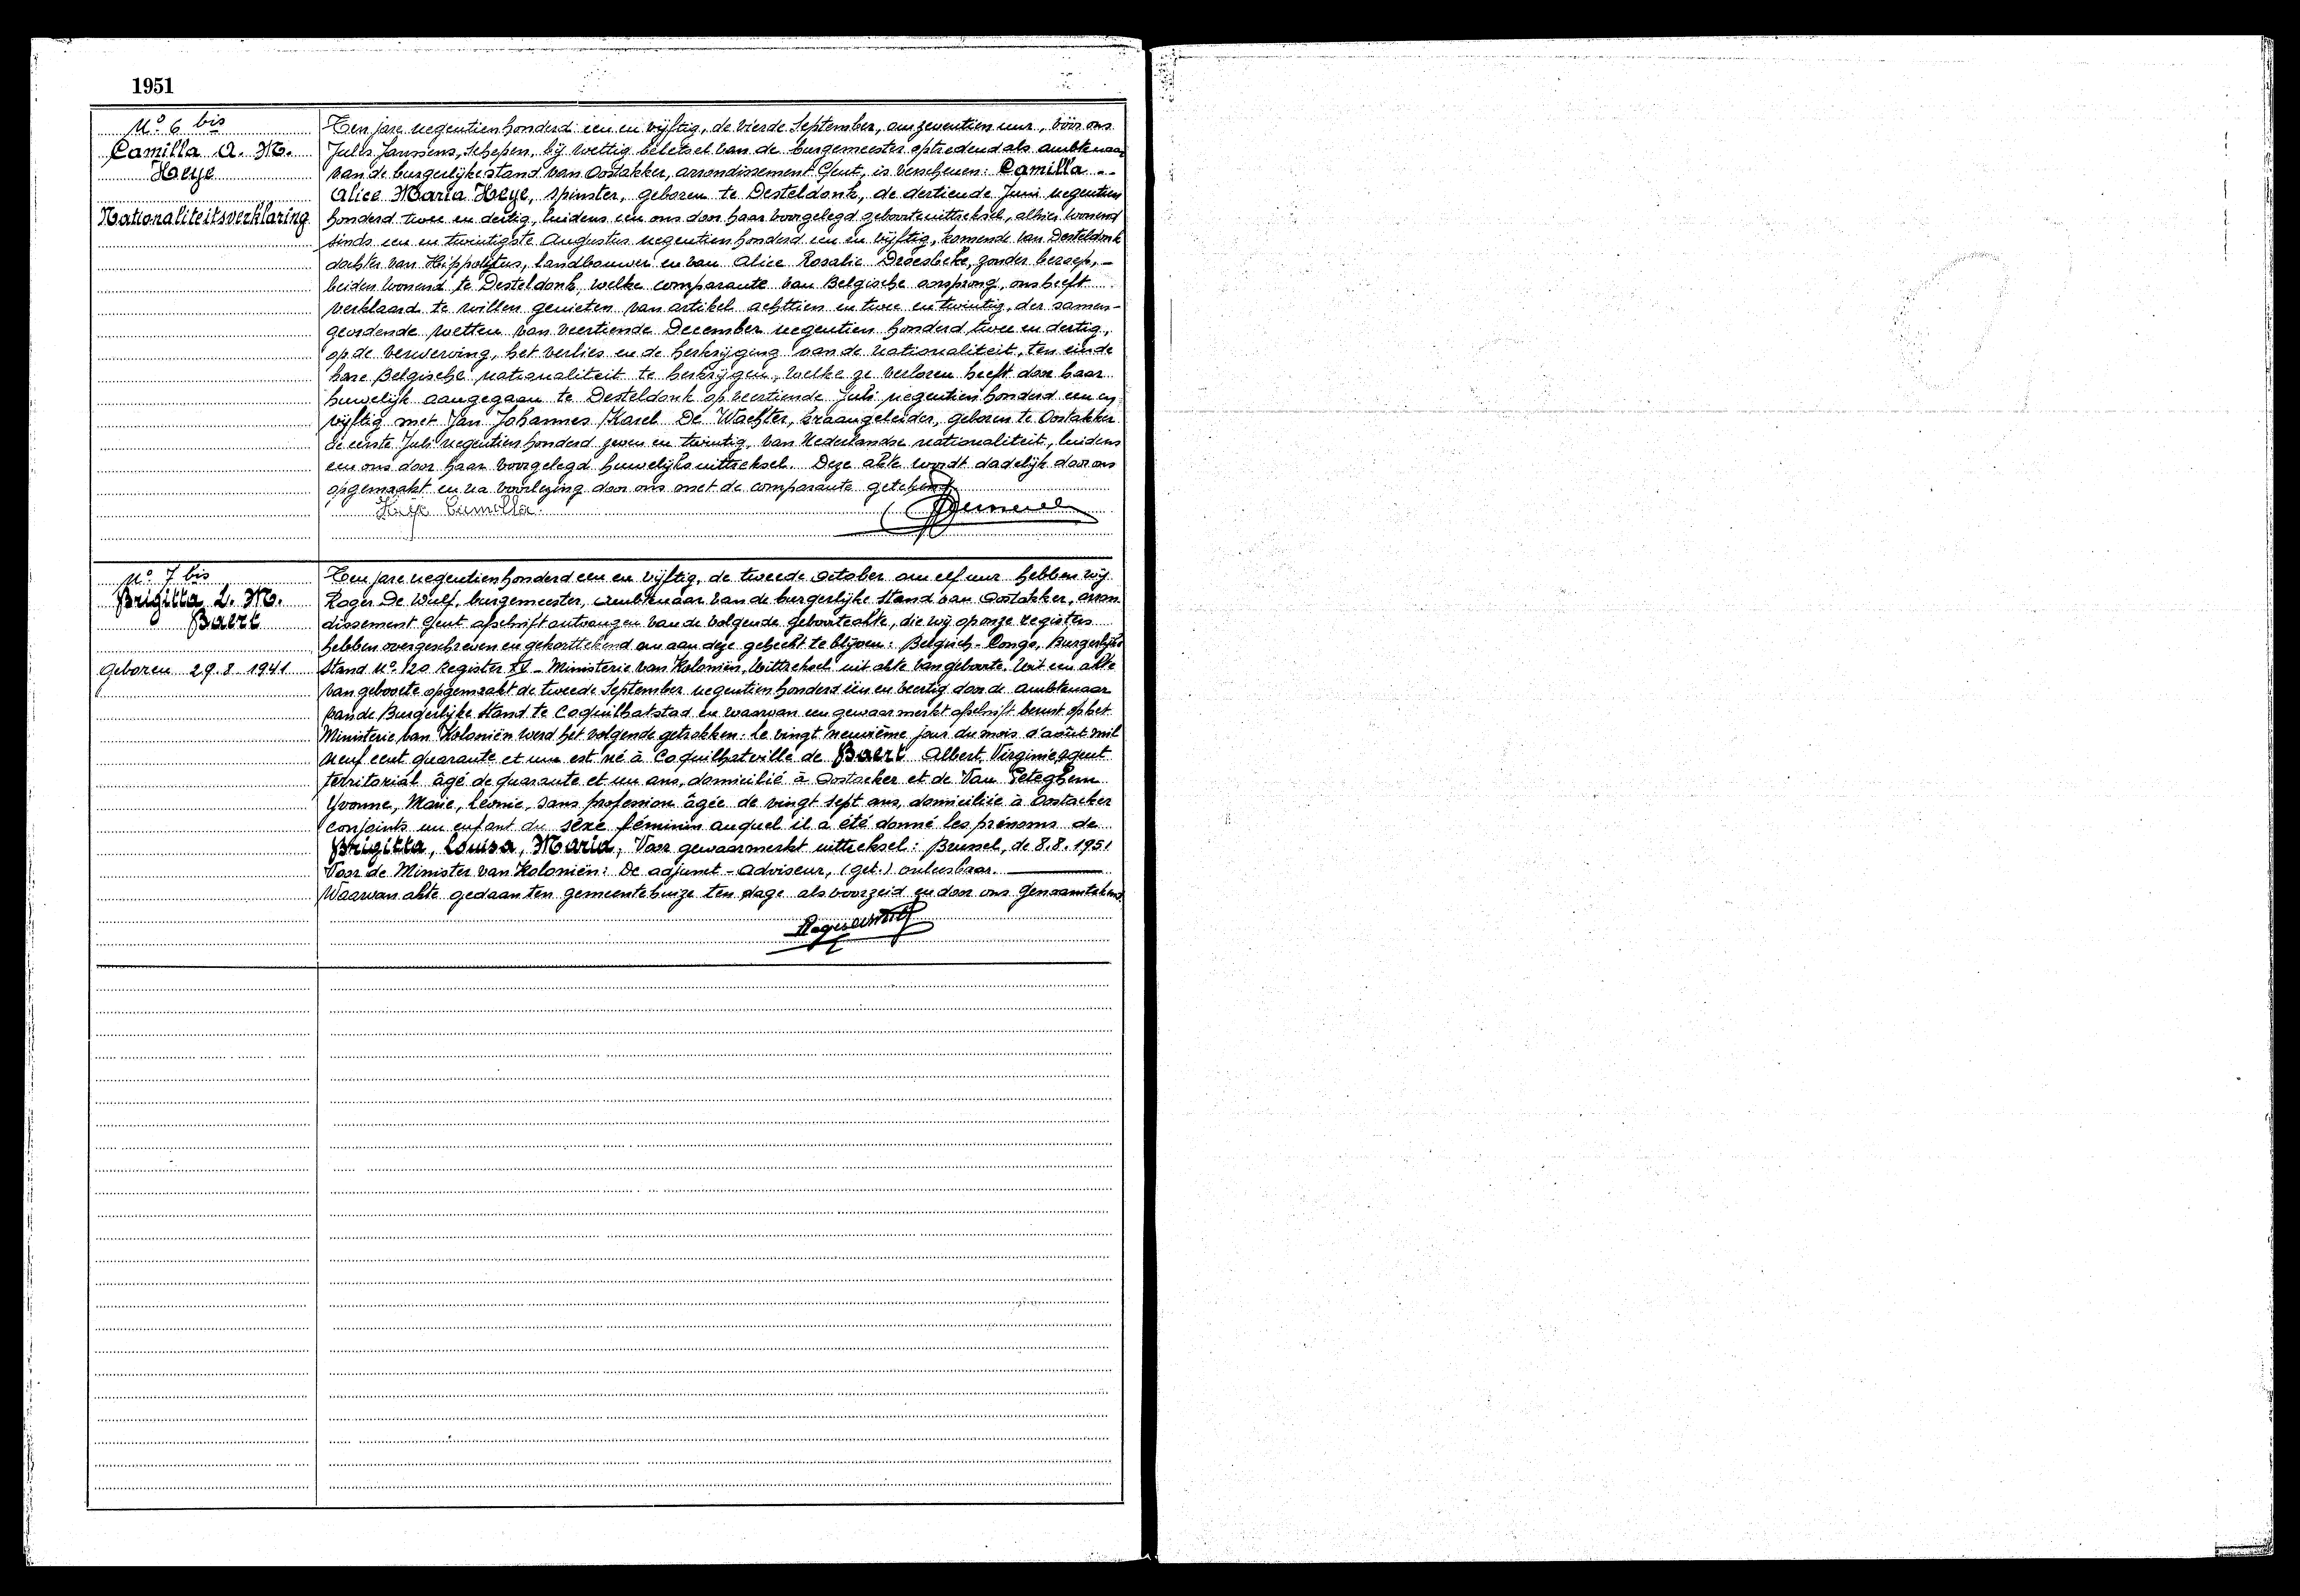 1951
N° 6 bis
Camilla A. M.
Heye
Nationaliteitsverklaring
Ten jare negentienhonderd een en vijftig, de vierde September, om zeventien uur, vóór ons
Jules Janssens, Schepen, bij wettig beletsel van de burgemeester optredend als ambtenaar
van de burgerlijke stand van Oostakker, arrondissement Gent, is verschenen: Camilla --
Alice Maria Heye, spinster, geboren te Desteldonk, de dertiende Juni negentien
honderd twee en dertig, luidens een ons door haar voorgelegd geboorteuittreksel, alhier wonend
sinds een en twintigste Augustus negentienhonderd een en vijftig, komende van Desteldonk
dochter van Hippolytus, landbouwer en van Alice Rosalie Droesbeke, zonder beroep, -
beiden wonend te Desteldonk, welke comparante van Belgische oorsprong, ons heeft
verklaard te willen genieten van artikel achttien en twee en twintig, der samen-
geordende wetten van veertiende December negentien honderd twee en dertig,
op de verwerving, het verlies en de herkrijging van de nationaliteit, ten einde
hare Belgische nationaliteit te herkrijgen, welke ze verloren heeft door haar
huwelijk aangegaan te Desteldonk op veertiende Juli negentien honderd een en
vijftig met Jan Johannes Karel De Wachter, kraangeleider, geboren te Oostakker
de eerste Juli negentien honderd zeven en twintig, van Nederlandse nationaliteit, luidens
een ons door haar voorgelegd huwelijksuittreksel. Deze akte wordt dadelijk door ons
opgemaakt en na voorlezing door ons met de comparante getekend
Heye Camilla
N° 7 bis
Brigitta L. M.
Baert
geboren 29.8.1941
Ten jare negentienhonderd een en vijftig, de tweede October om elf uur hebben wij
Roger De Wulf, burgemeester, ambtenaar van de burgerlijke stand van Oostakker, arron
dissement Gent afschrift ontvangen van de volgende geboorteakte, die wij op onze registers
hebben overgeschreven en gekorttekend om aan deze gehecht te blijven: Belgisch-Congo, Burgerlijke
Stand N° 120 Register XV - Ministerie van Koloniën, Uittreksel uit akte van geboorte. Uit een akte
van geboorte opgemaakt de tweede September negentien honderd één en veertig door de ambtenaar
van de Burgerlijke Stand te Coquilhatstad en waarvan een gewaarmerkt afschrift berust op het
Ministerie van Koloniën werd het volgende getrokken: Le vingt neuvième jour du mois d'août mil
neuf cent quarante et un est né à Coquilhatville de Baert Albert, Virginie agent
territorial âgé de quarante et un ans, domicilié à Oostacker et de Van Peteghem
Yvonne, Marie, Léonie, sans profession âgée de vingt sept ans, domiciliée à Oostacker
conjoints un enfant du sexe féminin auquel il a été donné les prénoms de
Brigitta, Louisa, Maria, Voor gewaarmerkt uittreksel: Brussel, de 8.8.1951
Voor de Minister van Koloniën: De adjunct-Adviseur, (get.) onleesbaar.
Waarvan akte gedaan ten gemeentehuize ten dage als voorzeid en door ons genaamtekend
Roger De Wulf